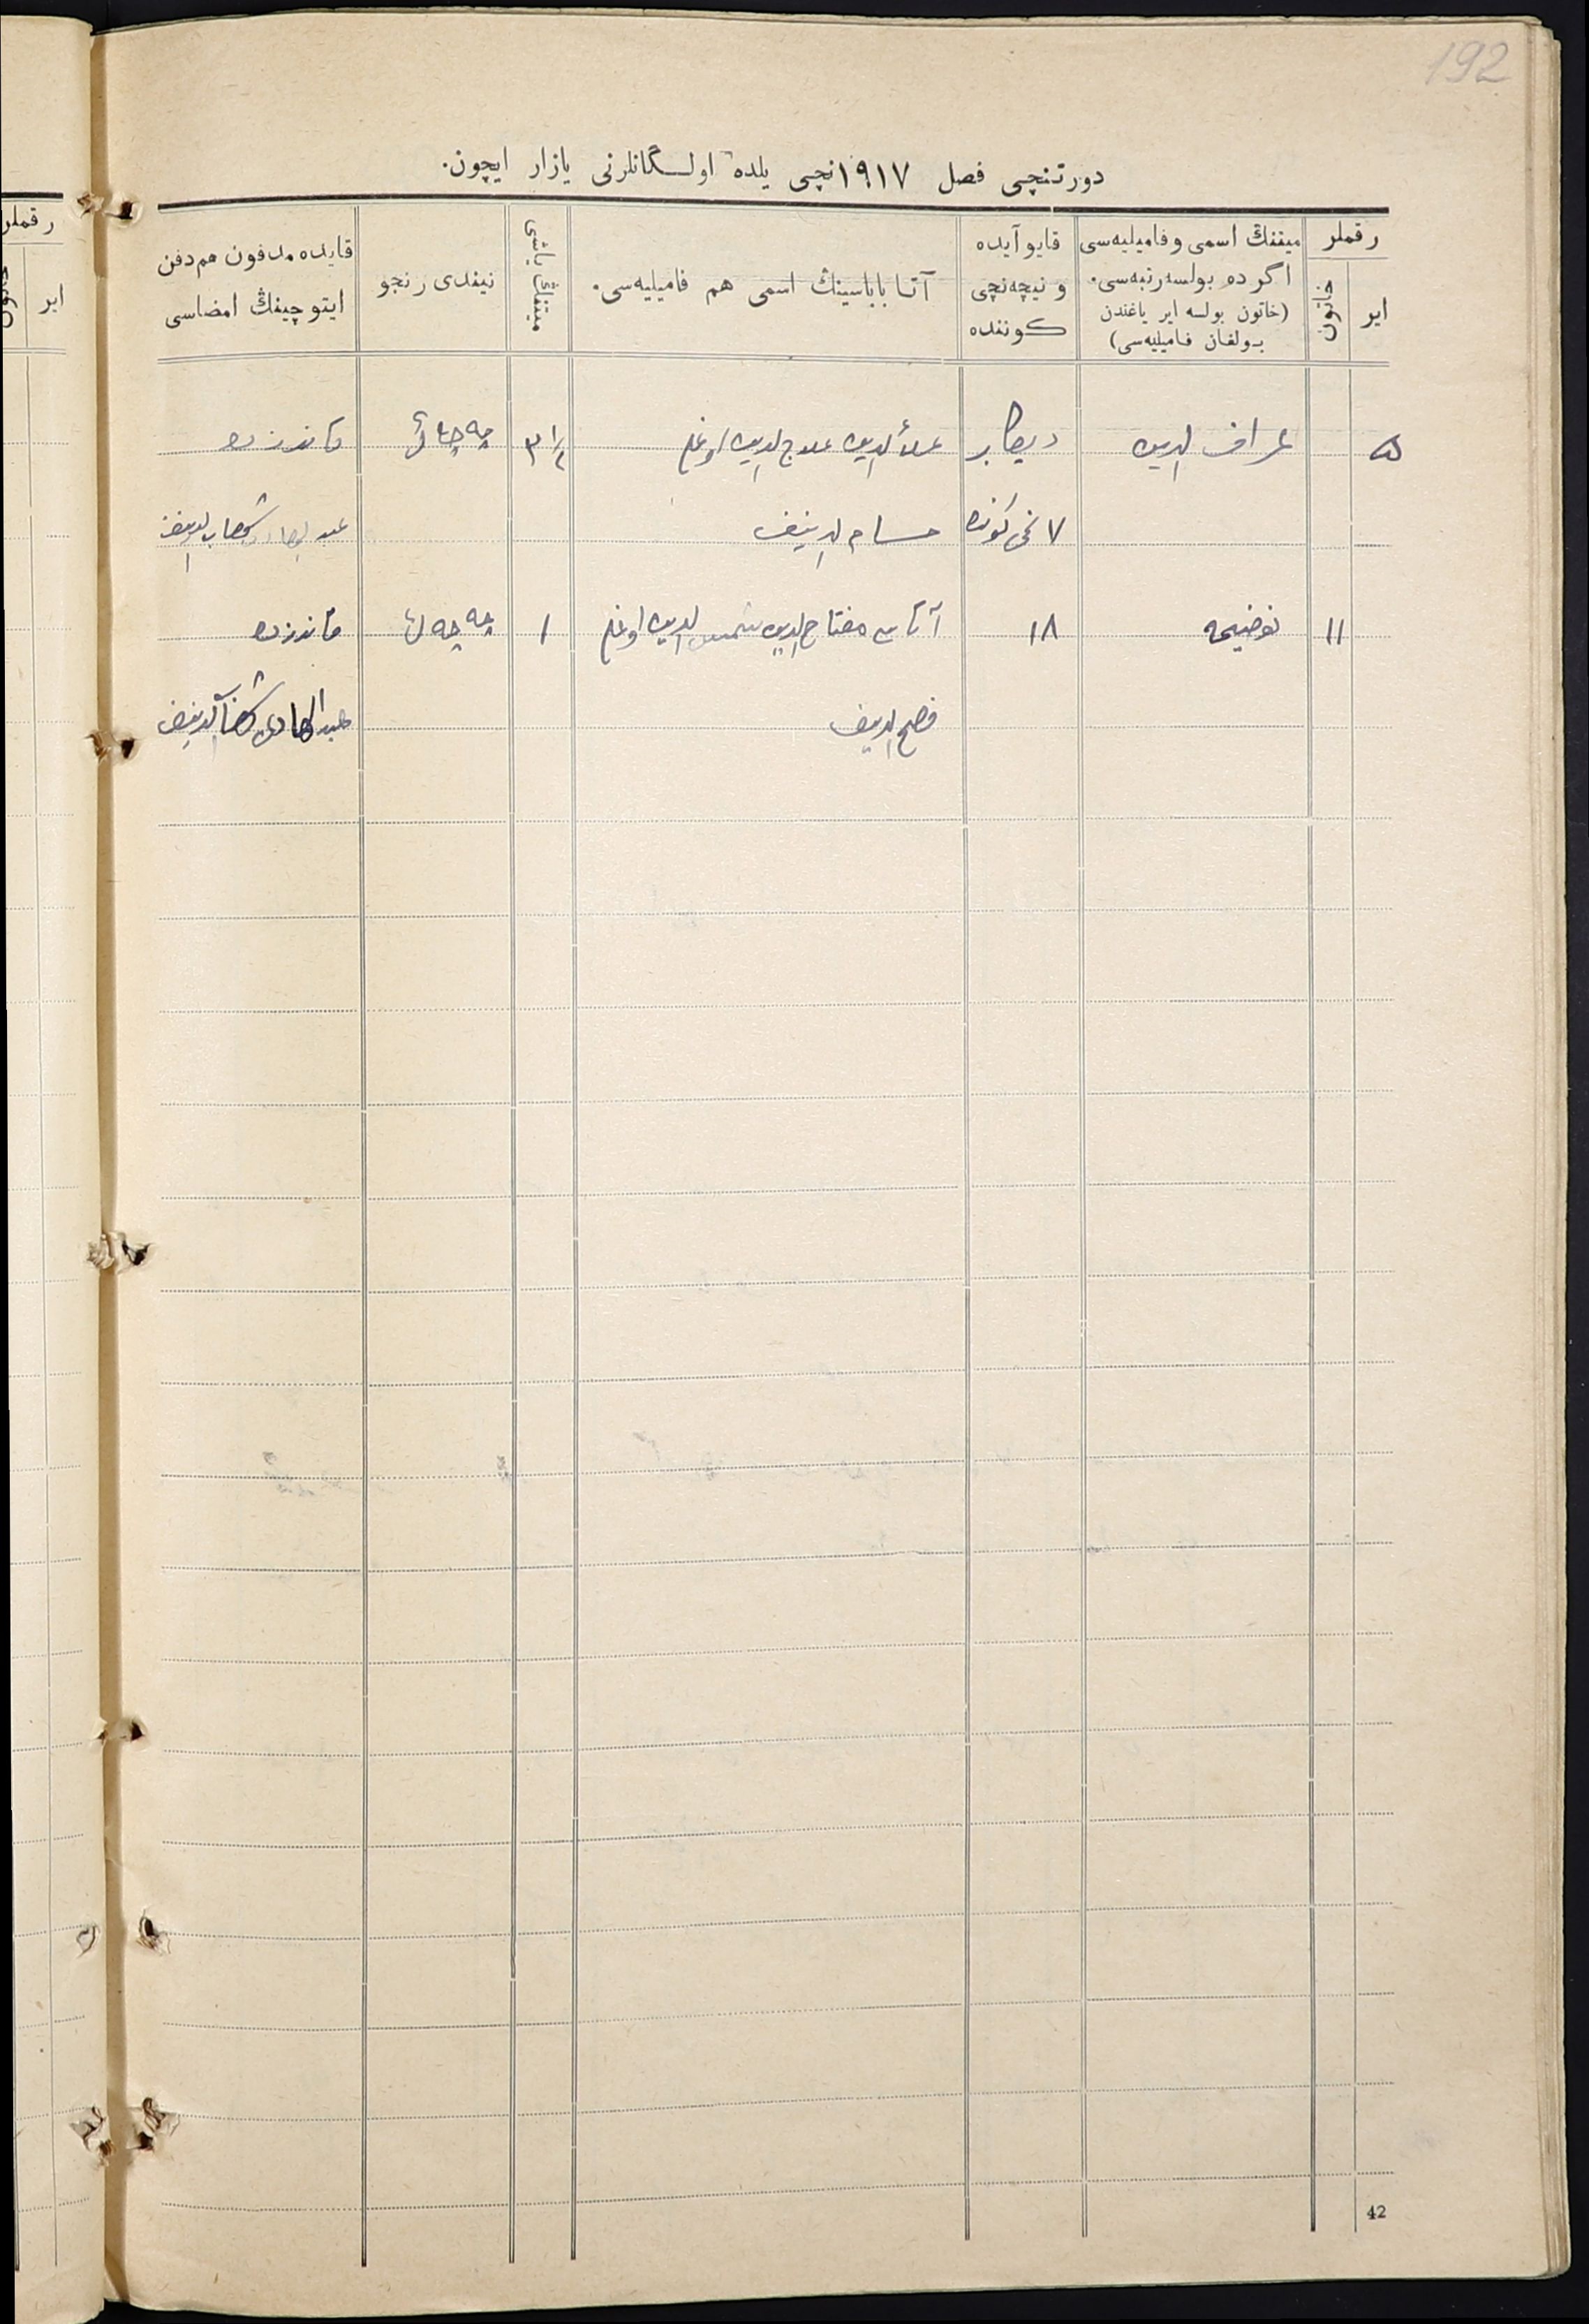 192
دورتنچی فصل ۱۹۱۷نچی یلده اولـگانلرنی یازار ایچون.
رقملر
ایر
خاتون
میتنڭ اسمی و فامیلیه‌سی
اگر ده بولسه رتبه‌سی.
(خاتون بولسه ایر یاغندن
بولغان فامیلیه‌سی)
قایو آیده
و نیچه‌نچی
کوننده
آتا باباسینڭ اسمی هم فامیلیه‌سی.
میتنڭ یاشی
نیندی رنجو
قایده مدفون هم دفن
ایتوچینڭ امضاسی
۵ عراف الدین دیکابر علأ الدین علاج الدین اوغلی چه چاق
۷ نچی کونده حسام الدینف
۱۱ ۱۸ آتاسی مفتاح الدین شمس الدین اوغلی ۱ چه چه ک
فصح الدینف عبد الهادی
رقملر
ایر
42